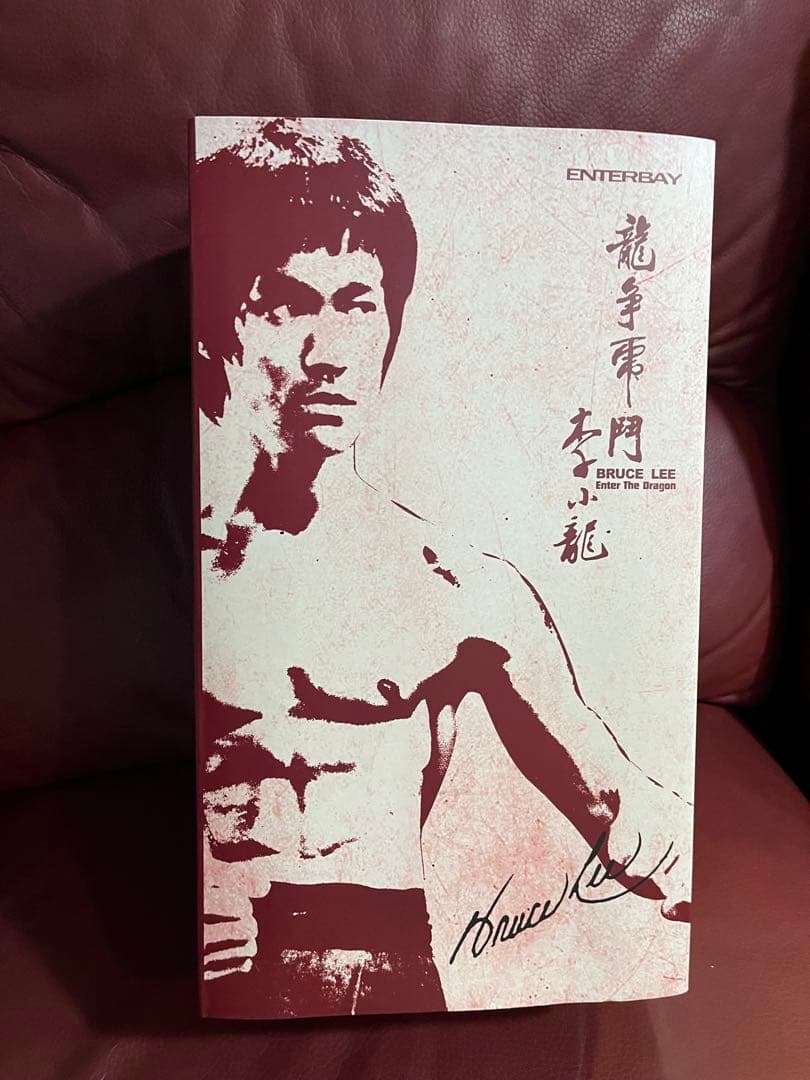 ENTERBAY
龍爭虎鬥
李小龍
BRUCE LEE
Enter The Dragon
Bruce Lee